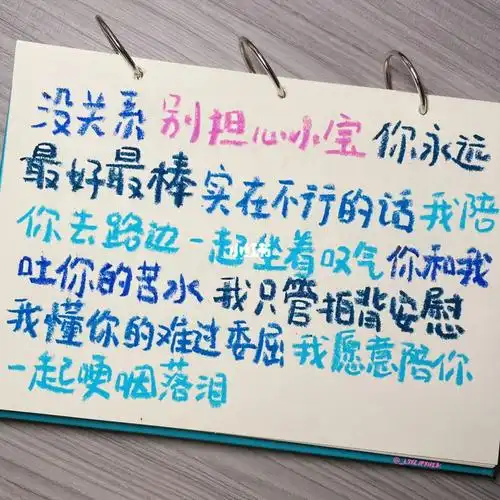 没关系 别担心小宝 你永远
最好最棒 实在不行的话 我陪
你去路边一起坐着叹气 你和我
吐你的苦水 我只管拍背安慰
我懂你的难过委屈 我愿意陪你
一起哽咽落泪
小红书